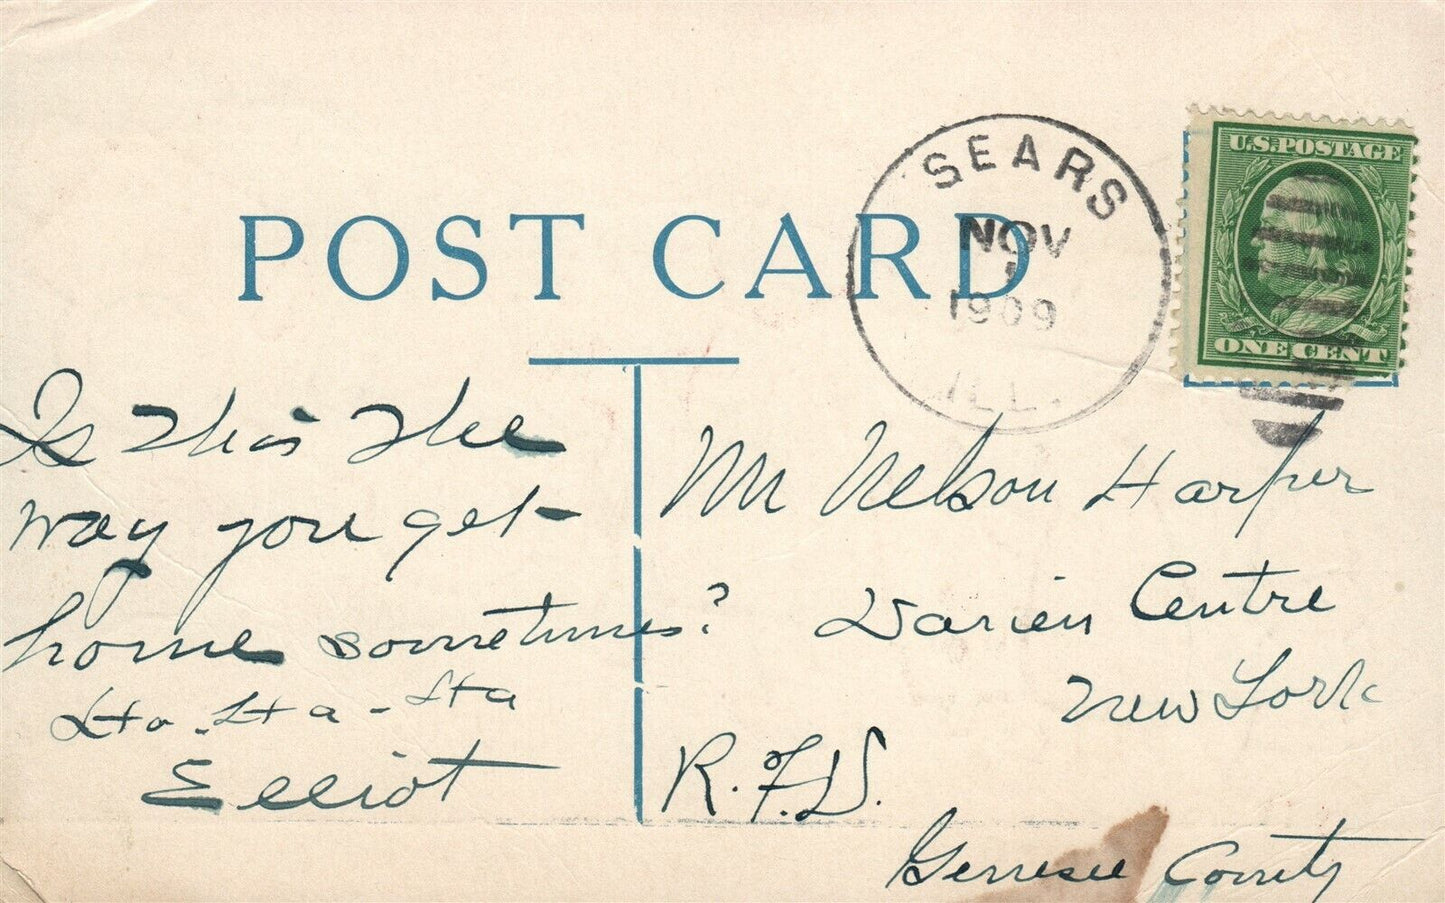 POST CARD
SEARS
NOV
1
1909
ILL.
U.S. POSTAGE
ONE CENT
Is this the
way you get
home sometimes?
Ha-Ha-Ha
Elliot
Mr Nelson Harper
Darien Centre
New York
R.F.D.
Genesee County